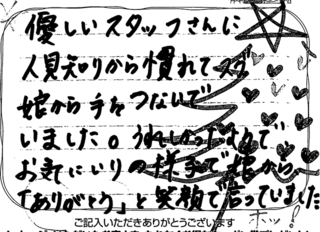 優しいスタッフさんに
人見知りから慣れてスグ
娘から手をつないで
いました。うれしかったようで
お気にいりの様子で娘から
「ありがとう」と笑顔で言っていました
ホッ!
ご記入いただきありがとうございます